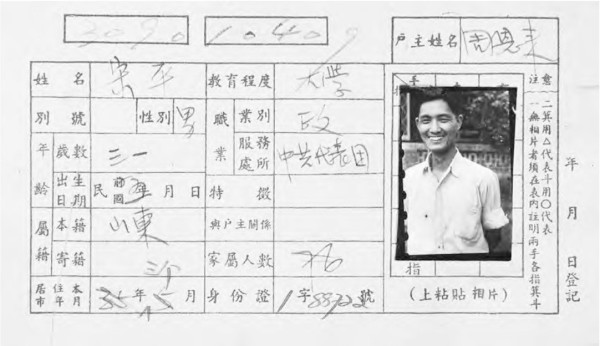 戶主姓名 周恩来
姓名 宋平 教育程度 大學
別號 性別 男 職業 業別 政
年齡 歲數 三一 服務處所 中共代表团
出生日期 民國 年 月 日 特徵
屬籍 本籍 山東 與戶主關係
寄籍 家屬人數
居住本市年月 年 月 身份證 字 號
手
指
(上粘貼相片)
注意
一無相片者須在表內註明兩手各指箕斗
二箕用△代表斗用○代表
年 月 日登記